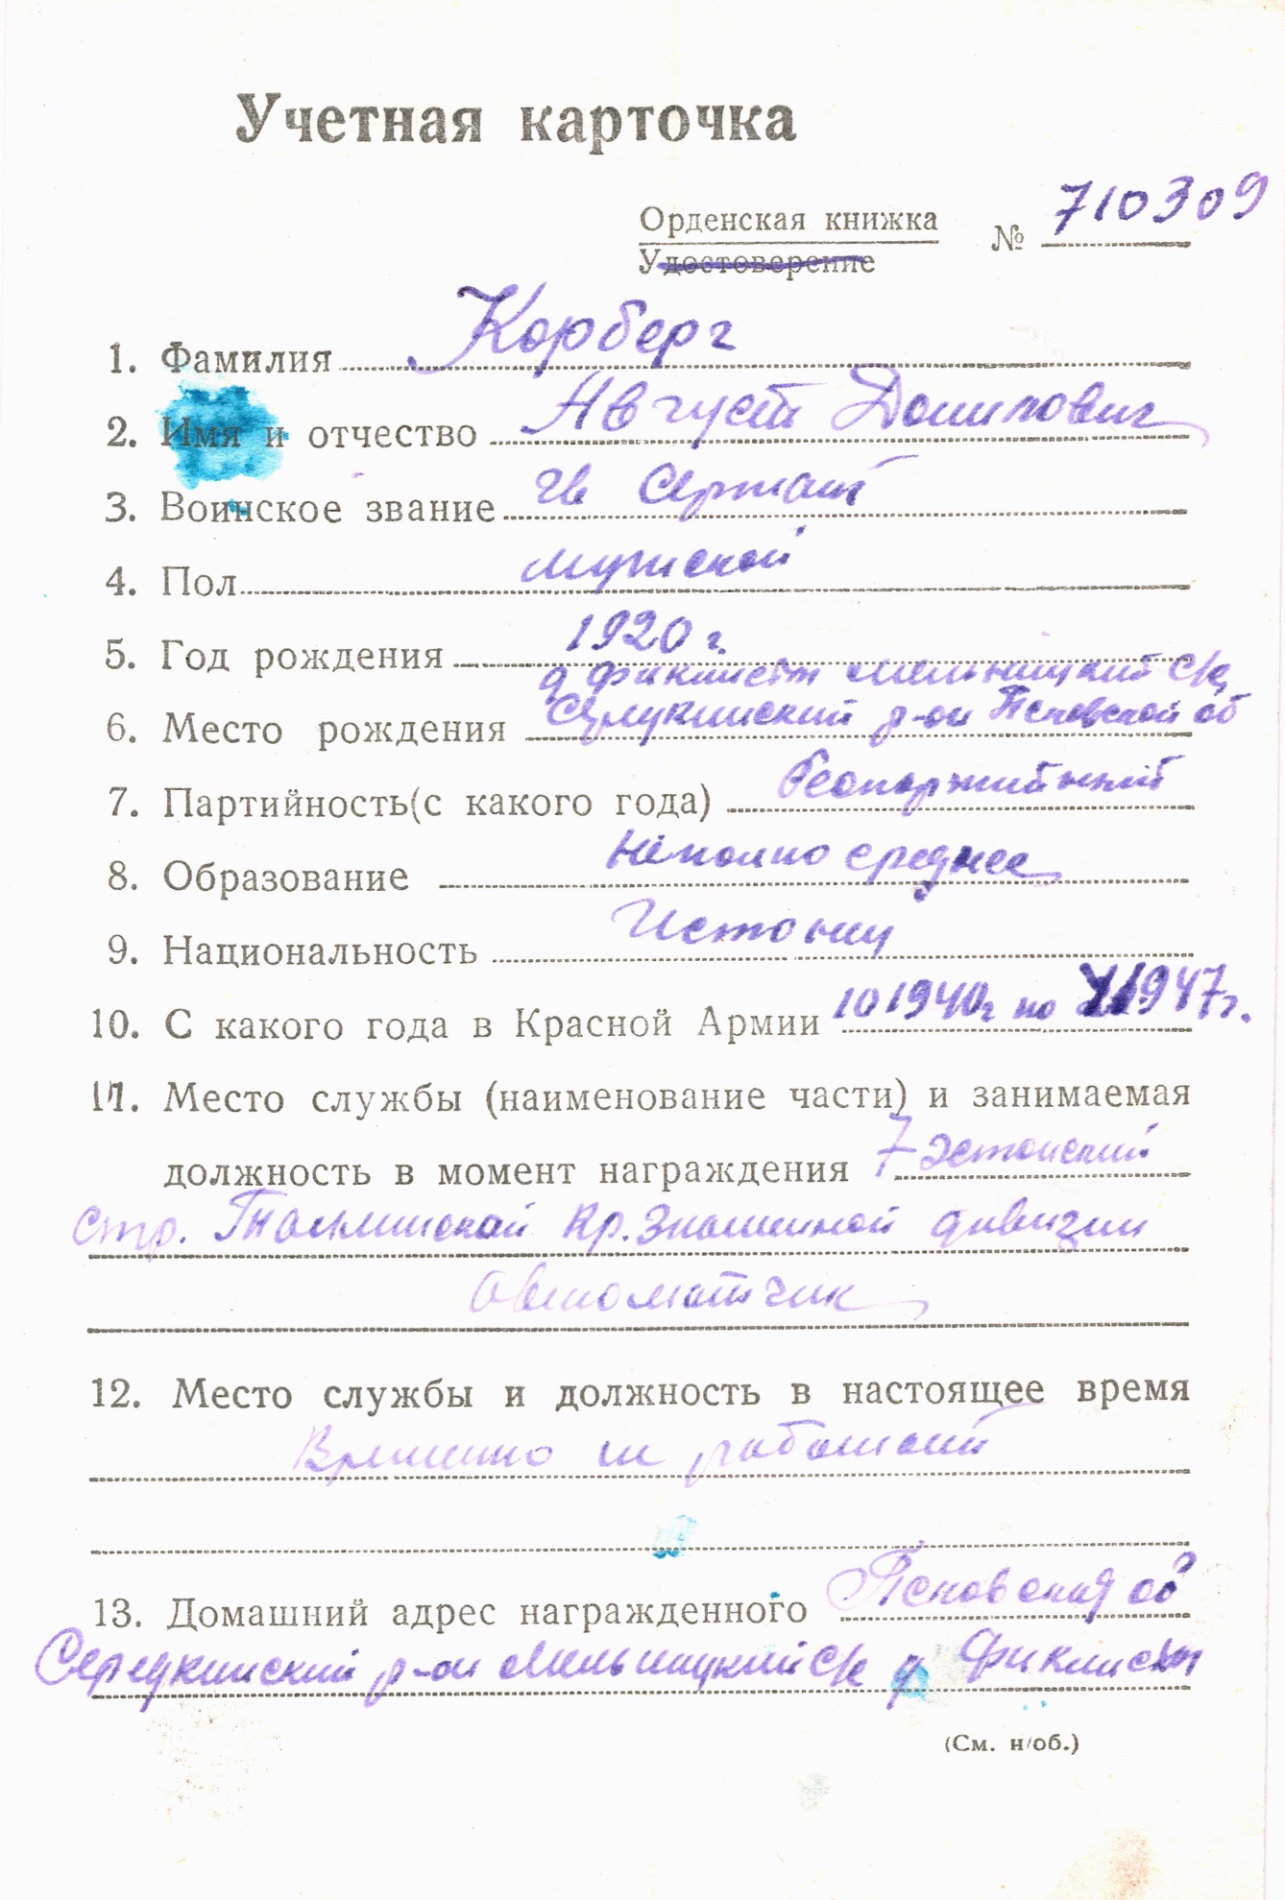 Учетная карточка
Орденская книжка № 710309
Удостоверение
1. Фамилия Корберг
2. Имя и отчество Август Данилович
3. Воинское звание гв Сержант
4. Пол мужской
5. Год рождения 1920 г.
д Фиклист Мельницкий С/с
6. Место рождения Середкинский р-он Псковской об
7. Партийность (с какого года) беспартийный
8. Образование Неполно среднее
9. Национальность Истонец
10. С какого года в Красной Армии 10 1940г по 1947г.
11. Место службы (наименование части) и занимаемая
должность в момент награждения 7 Эстонский
стр. Таллинской Кр. Знаменной дивизии
автоматчик
12. Место службы и должность в настоящее время
Временно не работает
13. Домашний адрес награжденного Псковская об
Середкинский р-он Мельницкий С/с д Фиклист
(См. н/об.)